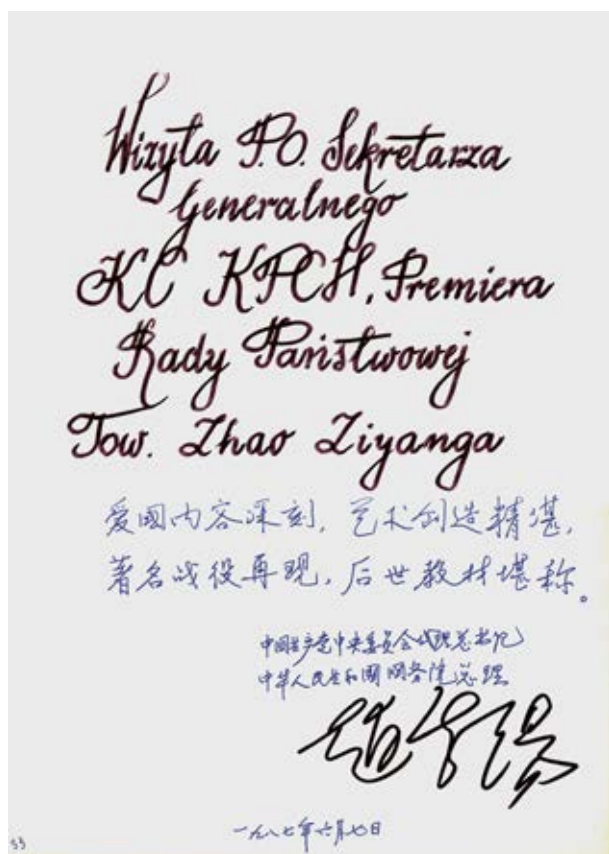 Wizyta P.O. Sekretarza
Generalnego
KC KPCH, Premiera
Rady Państwowej
Tow. Zhao Ziyanga
爱国内容深刻，艺术创造精湛，
著名战役再现，后世教材堪称。
中国共产党中央委员会代理总书记
中华人民共和国国务院总理
赵紫阳
一九八七年六月七日
33